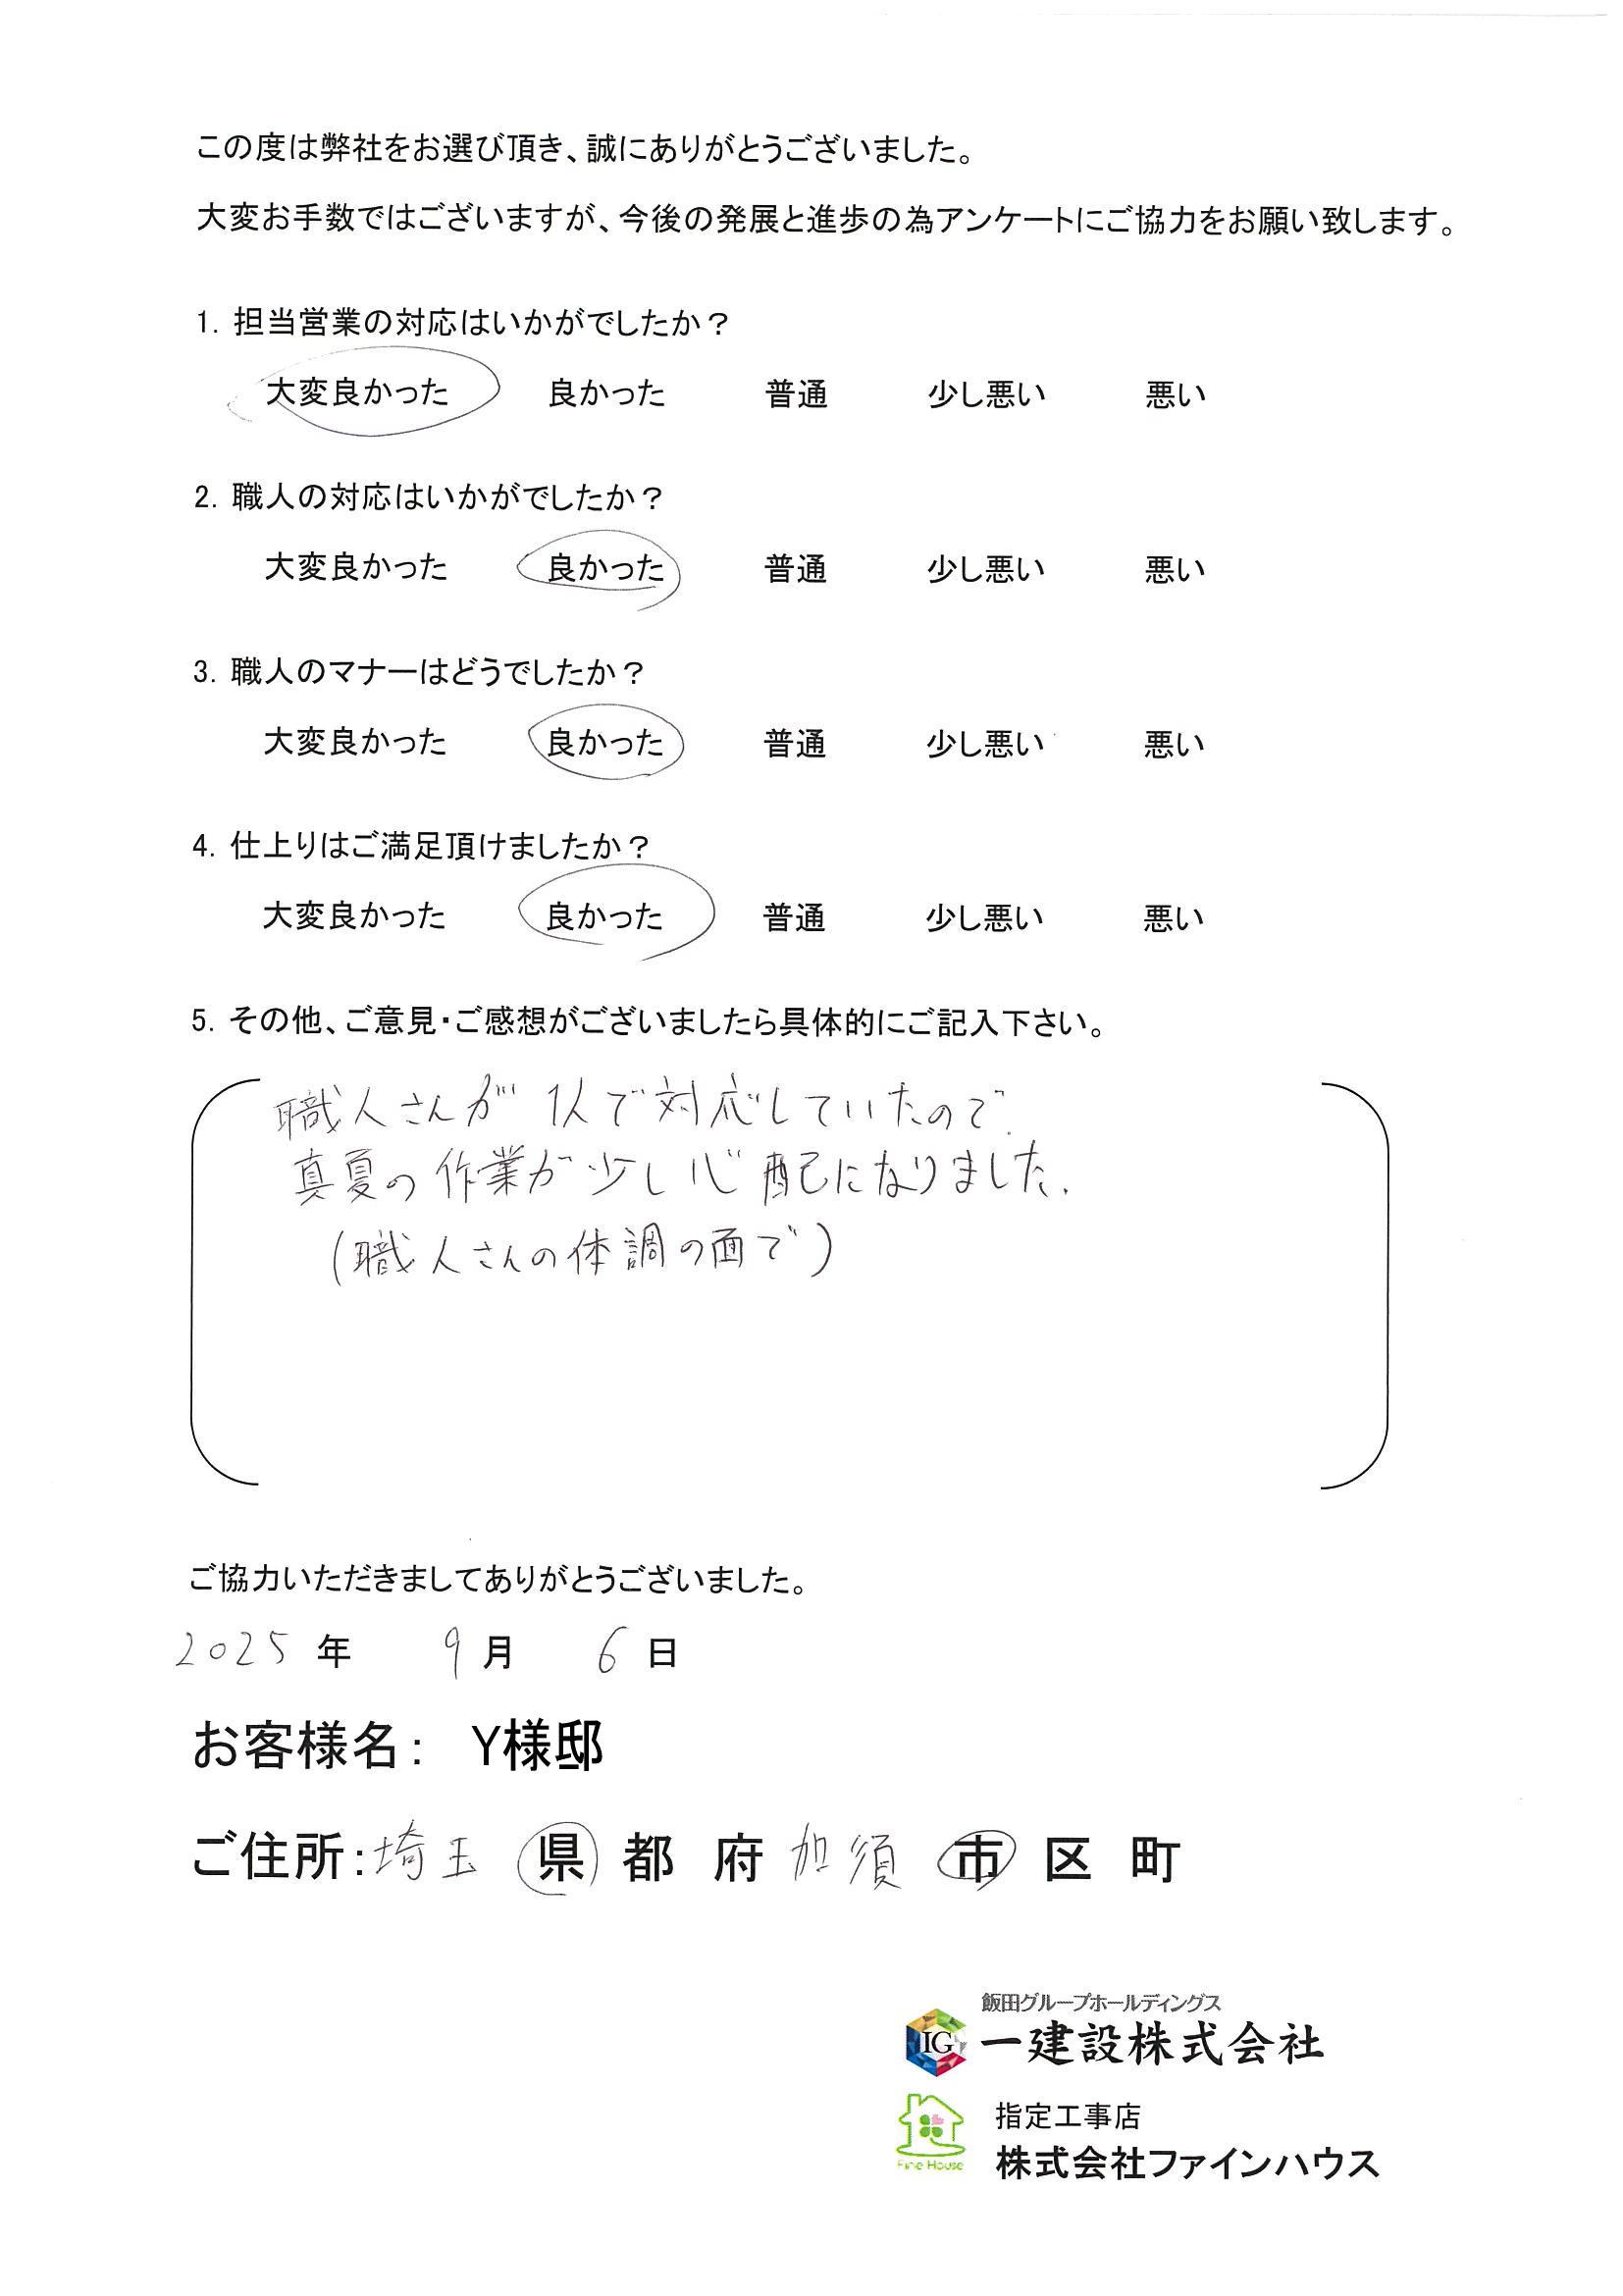 この度は弊社をお選び頂き、誠にありがとうございました。
大変お手数ではございますが、今後の発展と進歩の為アンケートにご協力をお願い致します。
1. 担当営業の対応はいかがでしたか？
大変良かった 良かった 普通 少し悪い 悪い
2. 職人の対応はいかがでしたか？
大変良かった 良かった 普通 少し悪い 悪い
3. 職人のマナーはどうでしたか？
大変良かった 良かった 普通 少し悪い 悪い
4. 仕上りはご満足頂けましたか？
大変良かった 良かった 普通 少し悪い 悪い
5. その他、ご意見・ご感想がございましたら具体的にご記入下さい。
職人さんが1人で対応していたので、
真夏の作業が少し心配になりました。
(職人さんの体調の面で)
ご協力いただきましてありがとうございました。
2025 年 9 月 6 日
お客様名： Y様邸
ご住所：埼玉 県 都 府 加須 市 区 町
飯田グループホールディングス
IG 一建設株式会社
指定工事店
Fine House 株式会社ファインハウス